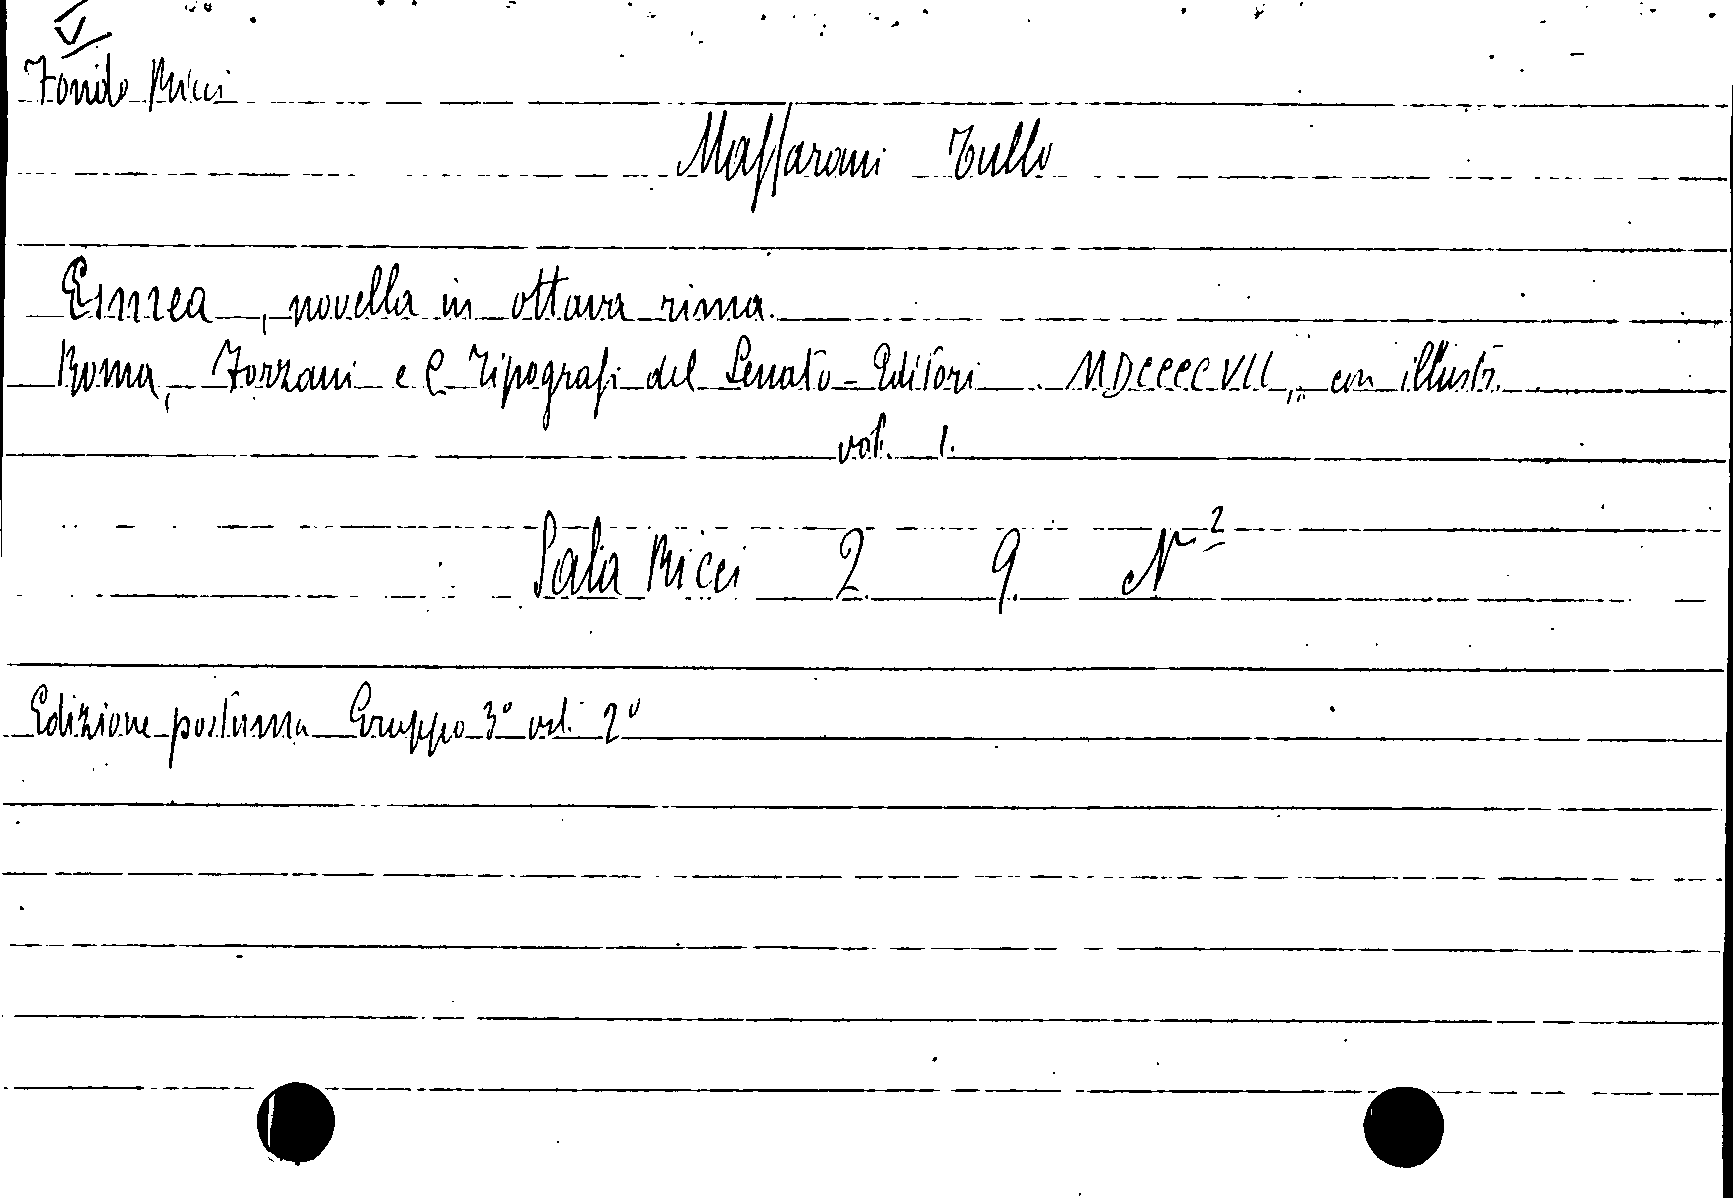 V
Fondo Ricci
Massarani Tullo
Esmea, novella in ottava rima.
Roma, Forzani e C Tipografi del Senato - Editori MDCCCCVII, con illustr.
vol. 1.
Sala Ricci 2. 9. N 2
Edizione postuma Gruppo 3° vol. 2°